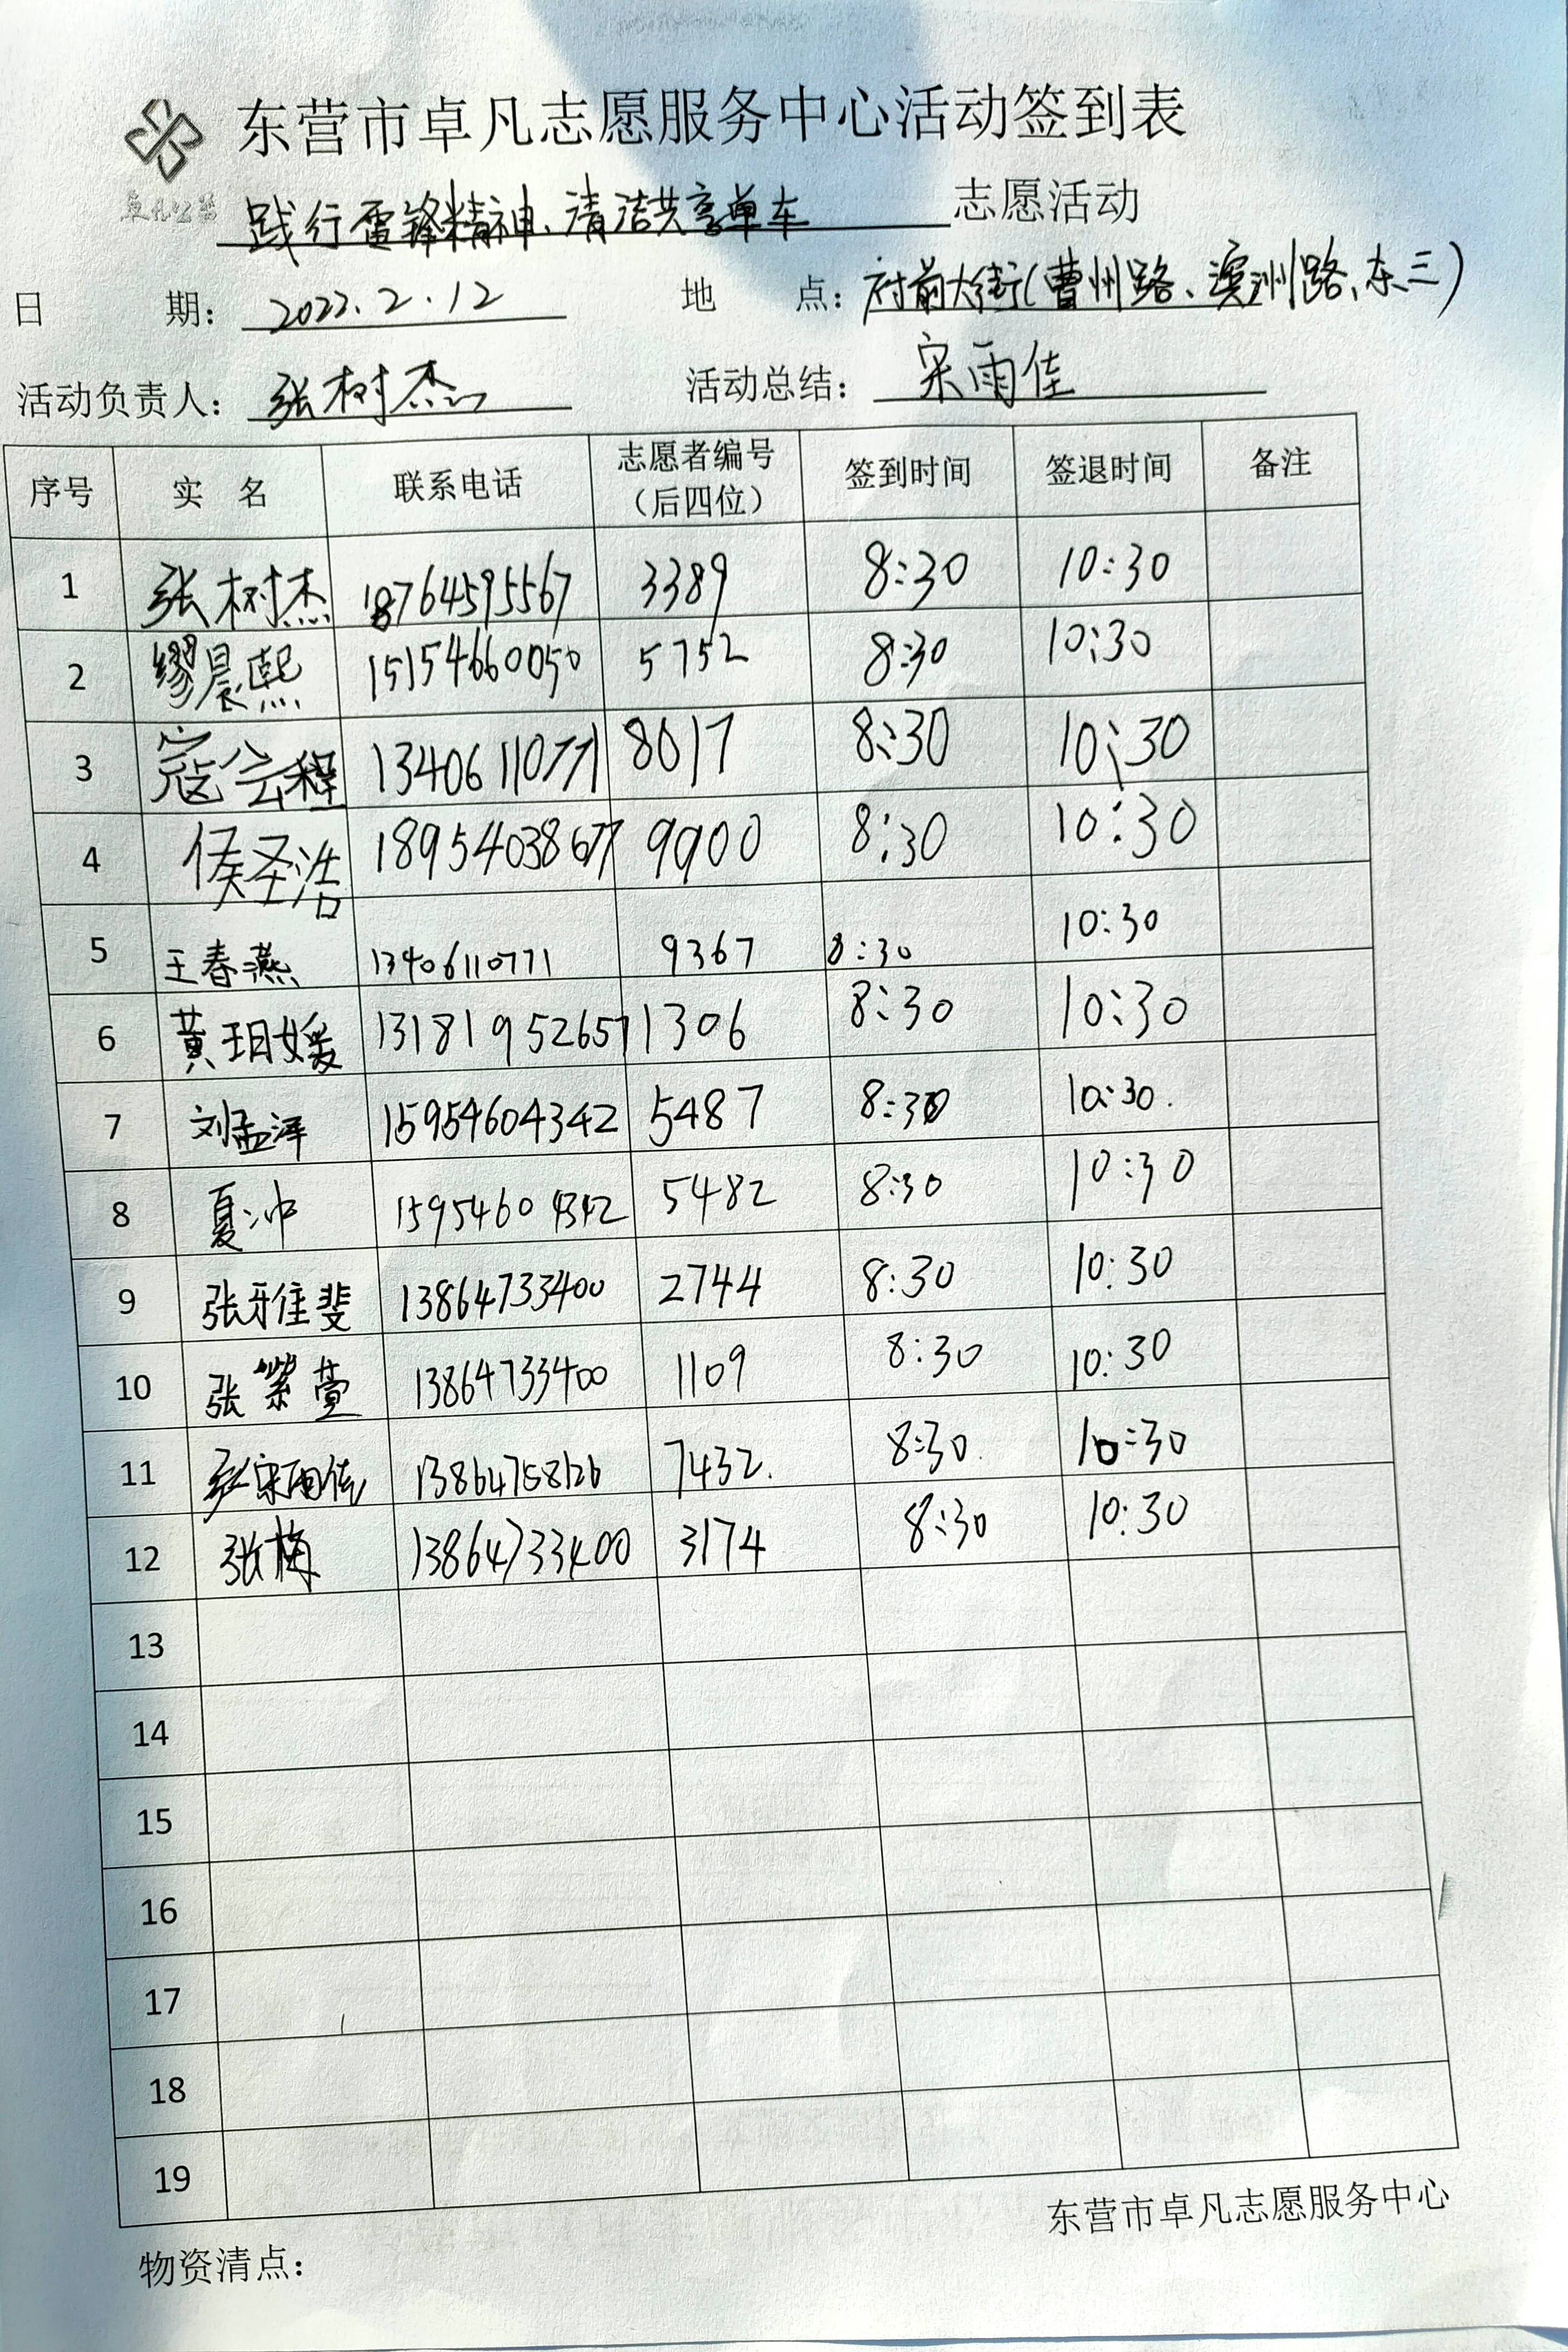 东营市卓凡志愿服务中心活动签到表
卓凡公益
践行雷锋精神、清洁共享单车 志愿活动
日 期: 2022.2.12 地 点: 府前大街(曹州路、滨州路、东三)
活动负责人: 张树杰 活动总结: 宋雨佳
序号 实 名 联系电话 志愿者编号(后四位) 签到时间 签退时间 备注
1 张树杰 18764595567 3389 8:30 10:30
2 缪晨熙 15154660050 5752 8:30 10:30
3 寇会程 13406110771 8017 8:30 10:30
4 侯圣浩 18954038677 9900 8:30 10:30
5 王春燕 13406110771 9367 8:30 10:30
6 黄玥媛 13181952657 1306 8:30 10:30
7 刘孟泽 15954604342 5487 8:30 10:30.
8 夏冲 15954604342 5482 8:30 10:30
9 张雅斐 13864733400 2744 8:30 10:30
10 张紫萱 13864733400 1109 8:30 10:30
11 宋雨佳 13864758126 7432. 8:30. 10:30
12 张梅 13864733400 3174 8:30 10:30
13
14
15
16
17
18
19
东营市卓凡志愿服务中心
物资清点: